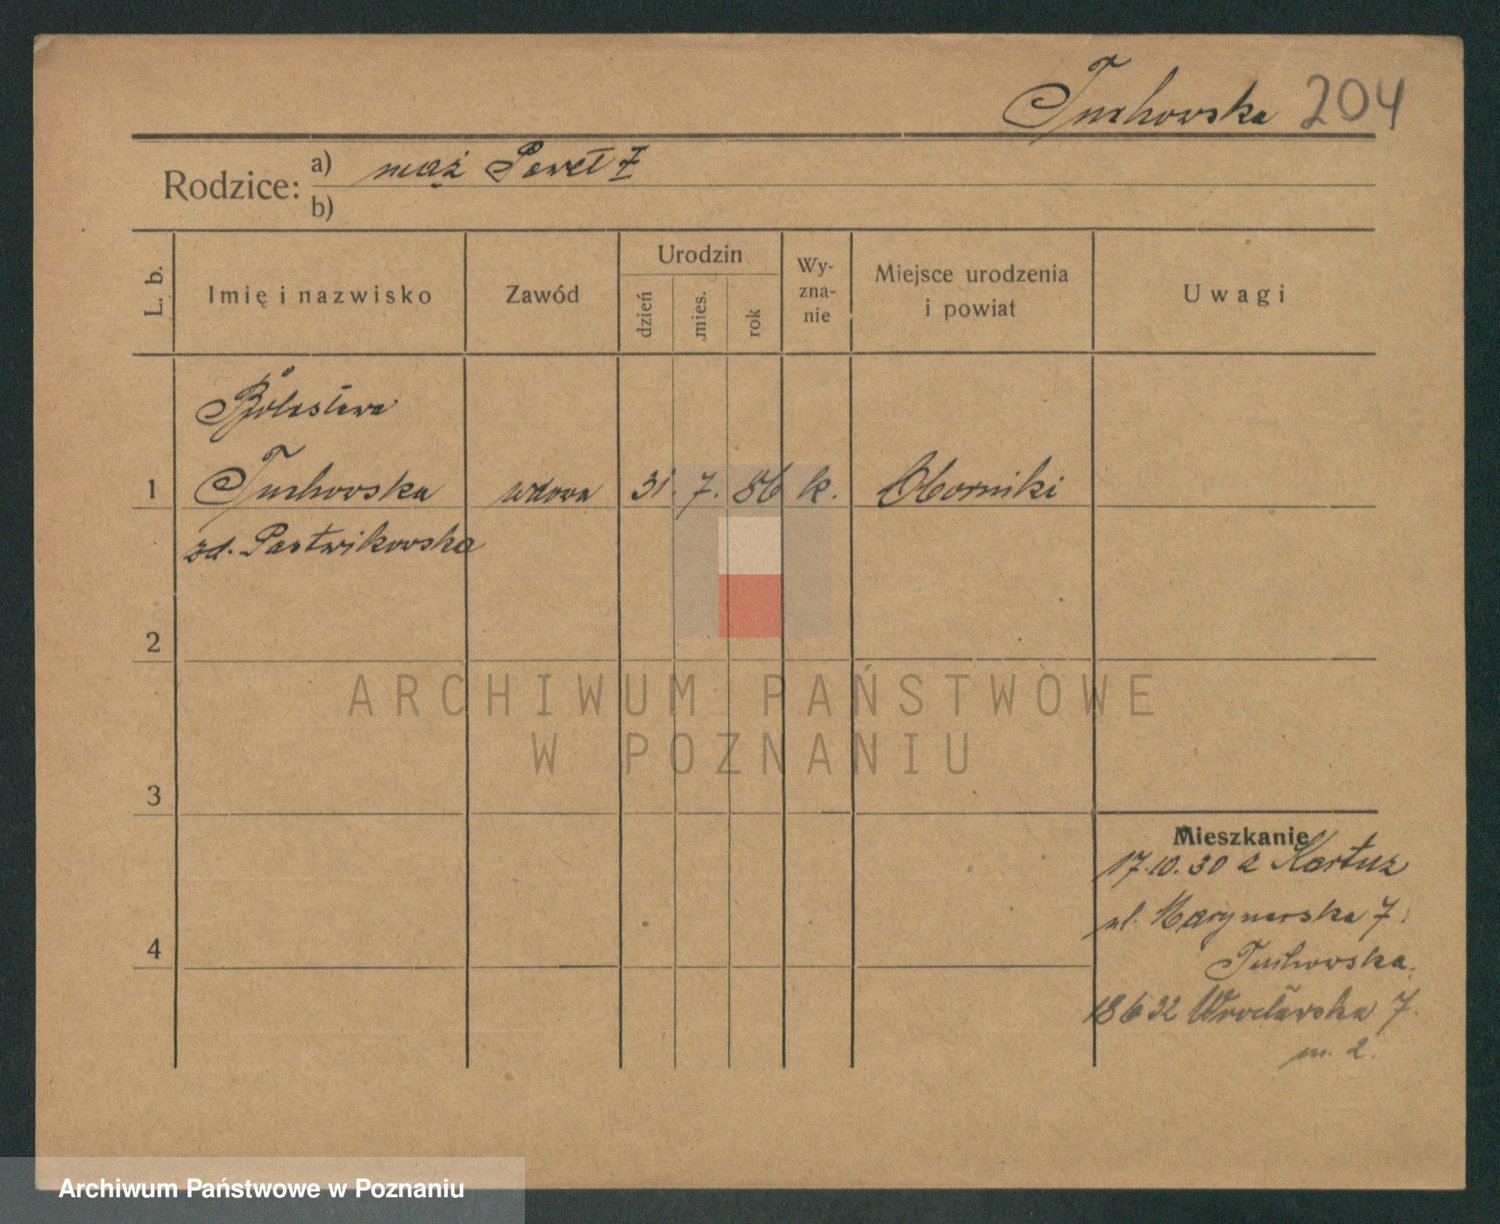 Tuchowska 204
Rodzice: a) mąż Paweł
b)
L. b.
Imię i nazwisko
Zawód
Urodzin
dzień
mies.
rok
Wy-
zna-
nie
Miejsce urodzenia
i powiat
Uwagi
Bolesława
1 Tuchowska wdowa 31. 7. 86 k. Oborniki
zd. Pastwikowska
2
3
4
Mieszkanie
17.10.30 z Kartuz
ul. Marynarska 7.
Tuchowska.
18 6 32 Wrocławska 7.
m. 2.
ARCHIWUM PAŃSTWOWE
W POZNANIU
Archiwum Państwowe w Poznaniu